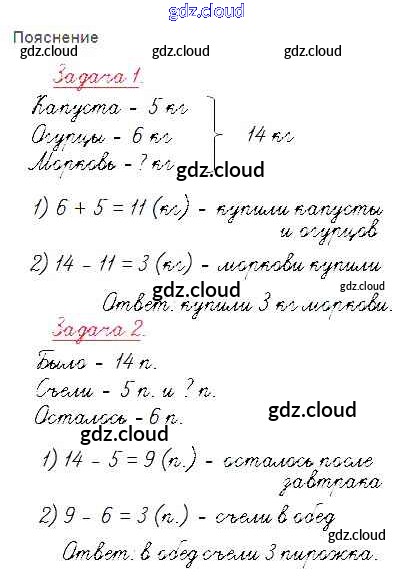 gdz.cloud
Пояснение
gdz.cloud gdz.cloud gdz.cloud
Задача 1.
gdz.cloud
Капуста - 5 кг
Огурцы - 6 кг 14 кг
Морковь - ? кг
gdz.cloud
1) 6 + 5 = 11 (кг) - купили капусты
и огурцов
gdz.cloud gdz.cloud
2) 14 - 11 = 3 (кг) - моркови купили
gdz.cloud gdz.cloud
Ответ: купили 3 кг моркови.
Задача 2.
gdz.cloud gdz.cloud
Было - 14 п.
Съели - 5 п. и ? п.
Осталось - 6 п.
gdz.cloud
gdz.cloud
1) 14 - 5 = 9 (п.) - осталось после
завтрака
gdz.cloud
2) 9 - 6 = 3 (п.) - съели в обед
gdz.cloud
Ответ: в обед съели 3 пирожка.
gdz.cloud